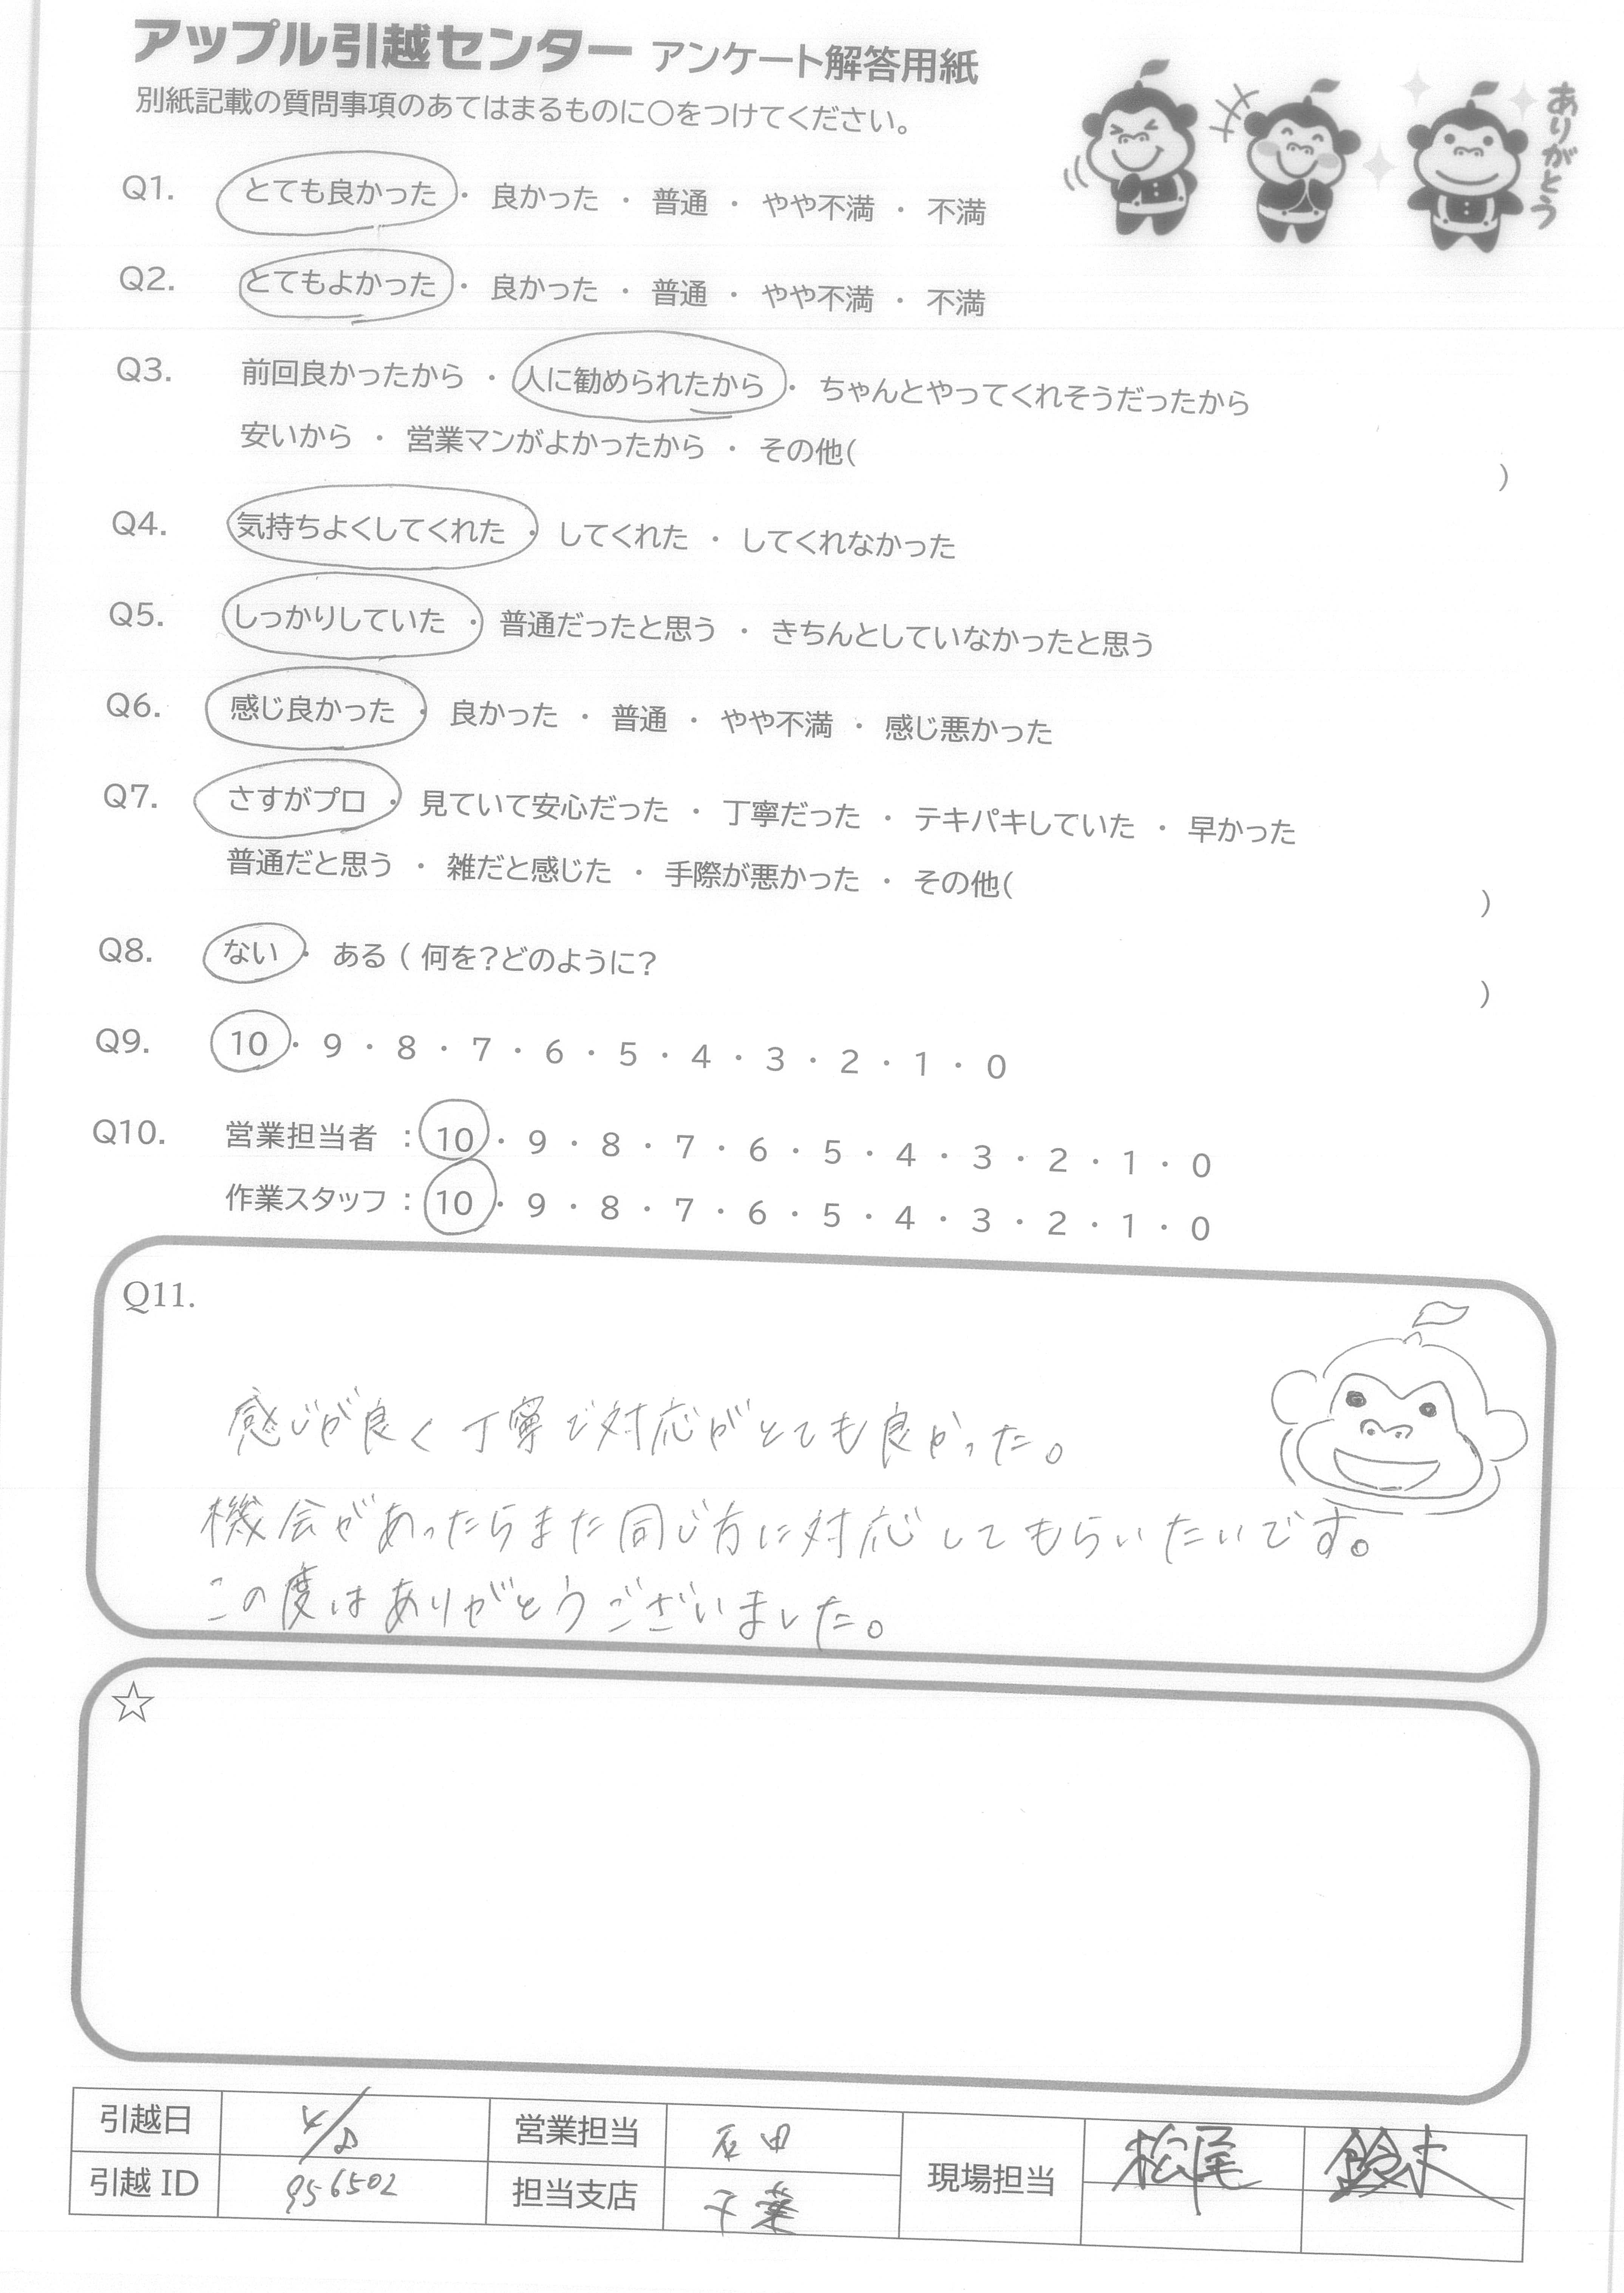 アップル引越センター アンケート解答用紙
別紙記載の質問事項のあてはまるものに〇をつけてください。
ありがとう
Q1. とても良かった ・ 良かった ・ 普通 ・ やや不満 ・ 不満
Q2. とてもよかった ・ 良かった ・ 普通 ・ やや不満 ・ 不満
Q3. 前回良かったから ・ 人に勧められたから ・ ちゃんとやってくれそうだったから
安いから ・ 営業マンがよかったから ・ その他( )
Q4. 気持ちよくしてくれた ・ してくれた ・ してくれなかった
Q5. しっかりしていた ・ 普通だったと思う ・ きちんとしていなかったと思う
Q6. 感じ良かった ・ 良かった ・ 普通 ・ やや不満 ・ 感じ悪かった
Q7. さすがプロ ・ 見ていて安心だった ・ 丁寧だった ・ テキパキしていた ・ 早かった
普通だと思う ・ 雑だと感じた ・ 手際が悪かった ・ その他( )
Q8. ない ・ ある ( 何を?どのように? )
Q9. 10 ・ 9 ・ 8 ・ 7 ・ 6 ・ 5 ・ 4 ・ 3 ・ 2 ・ 1 ・ 0
Q10. 営業担当者 : 10 ・ 9 ・ 8 ・ 7 ・ 6 ・ 5 ・ 4 ・ 3 ・ 2 ・ 1 ・ 0
作業スタッフ : 10 ・ 9 ・ 8 ・ 7 ・ 6 ・ 5 ・ 4 ・ 3 ・ 2 ・ 1 ・ 0
Q11.
感じが良く丁寧で対応がとても良かった。
機会があったらまた同じ方に対応してもらいたいです。
この度はありがとうございました。
☆
引越日 4/8 営業担当 石田 現場担当 松尾 鈴木
引越 ID 956502 担当支店 千葉